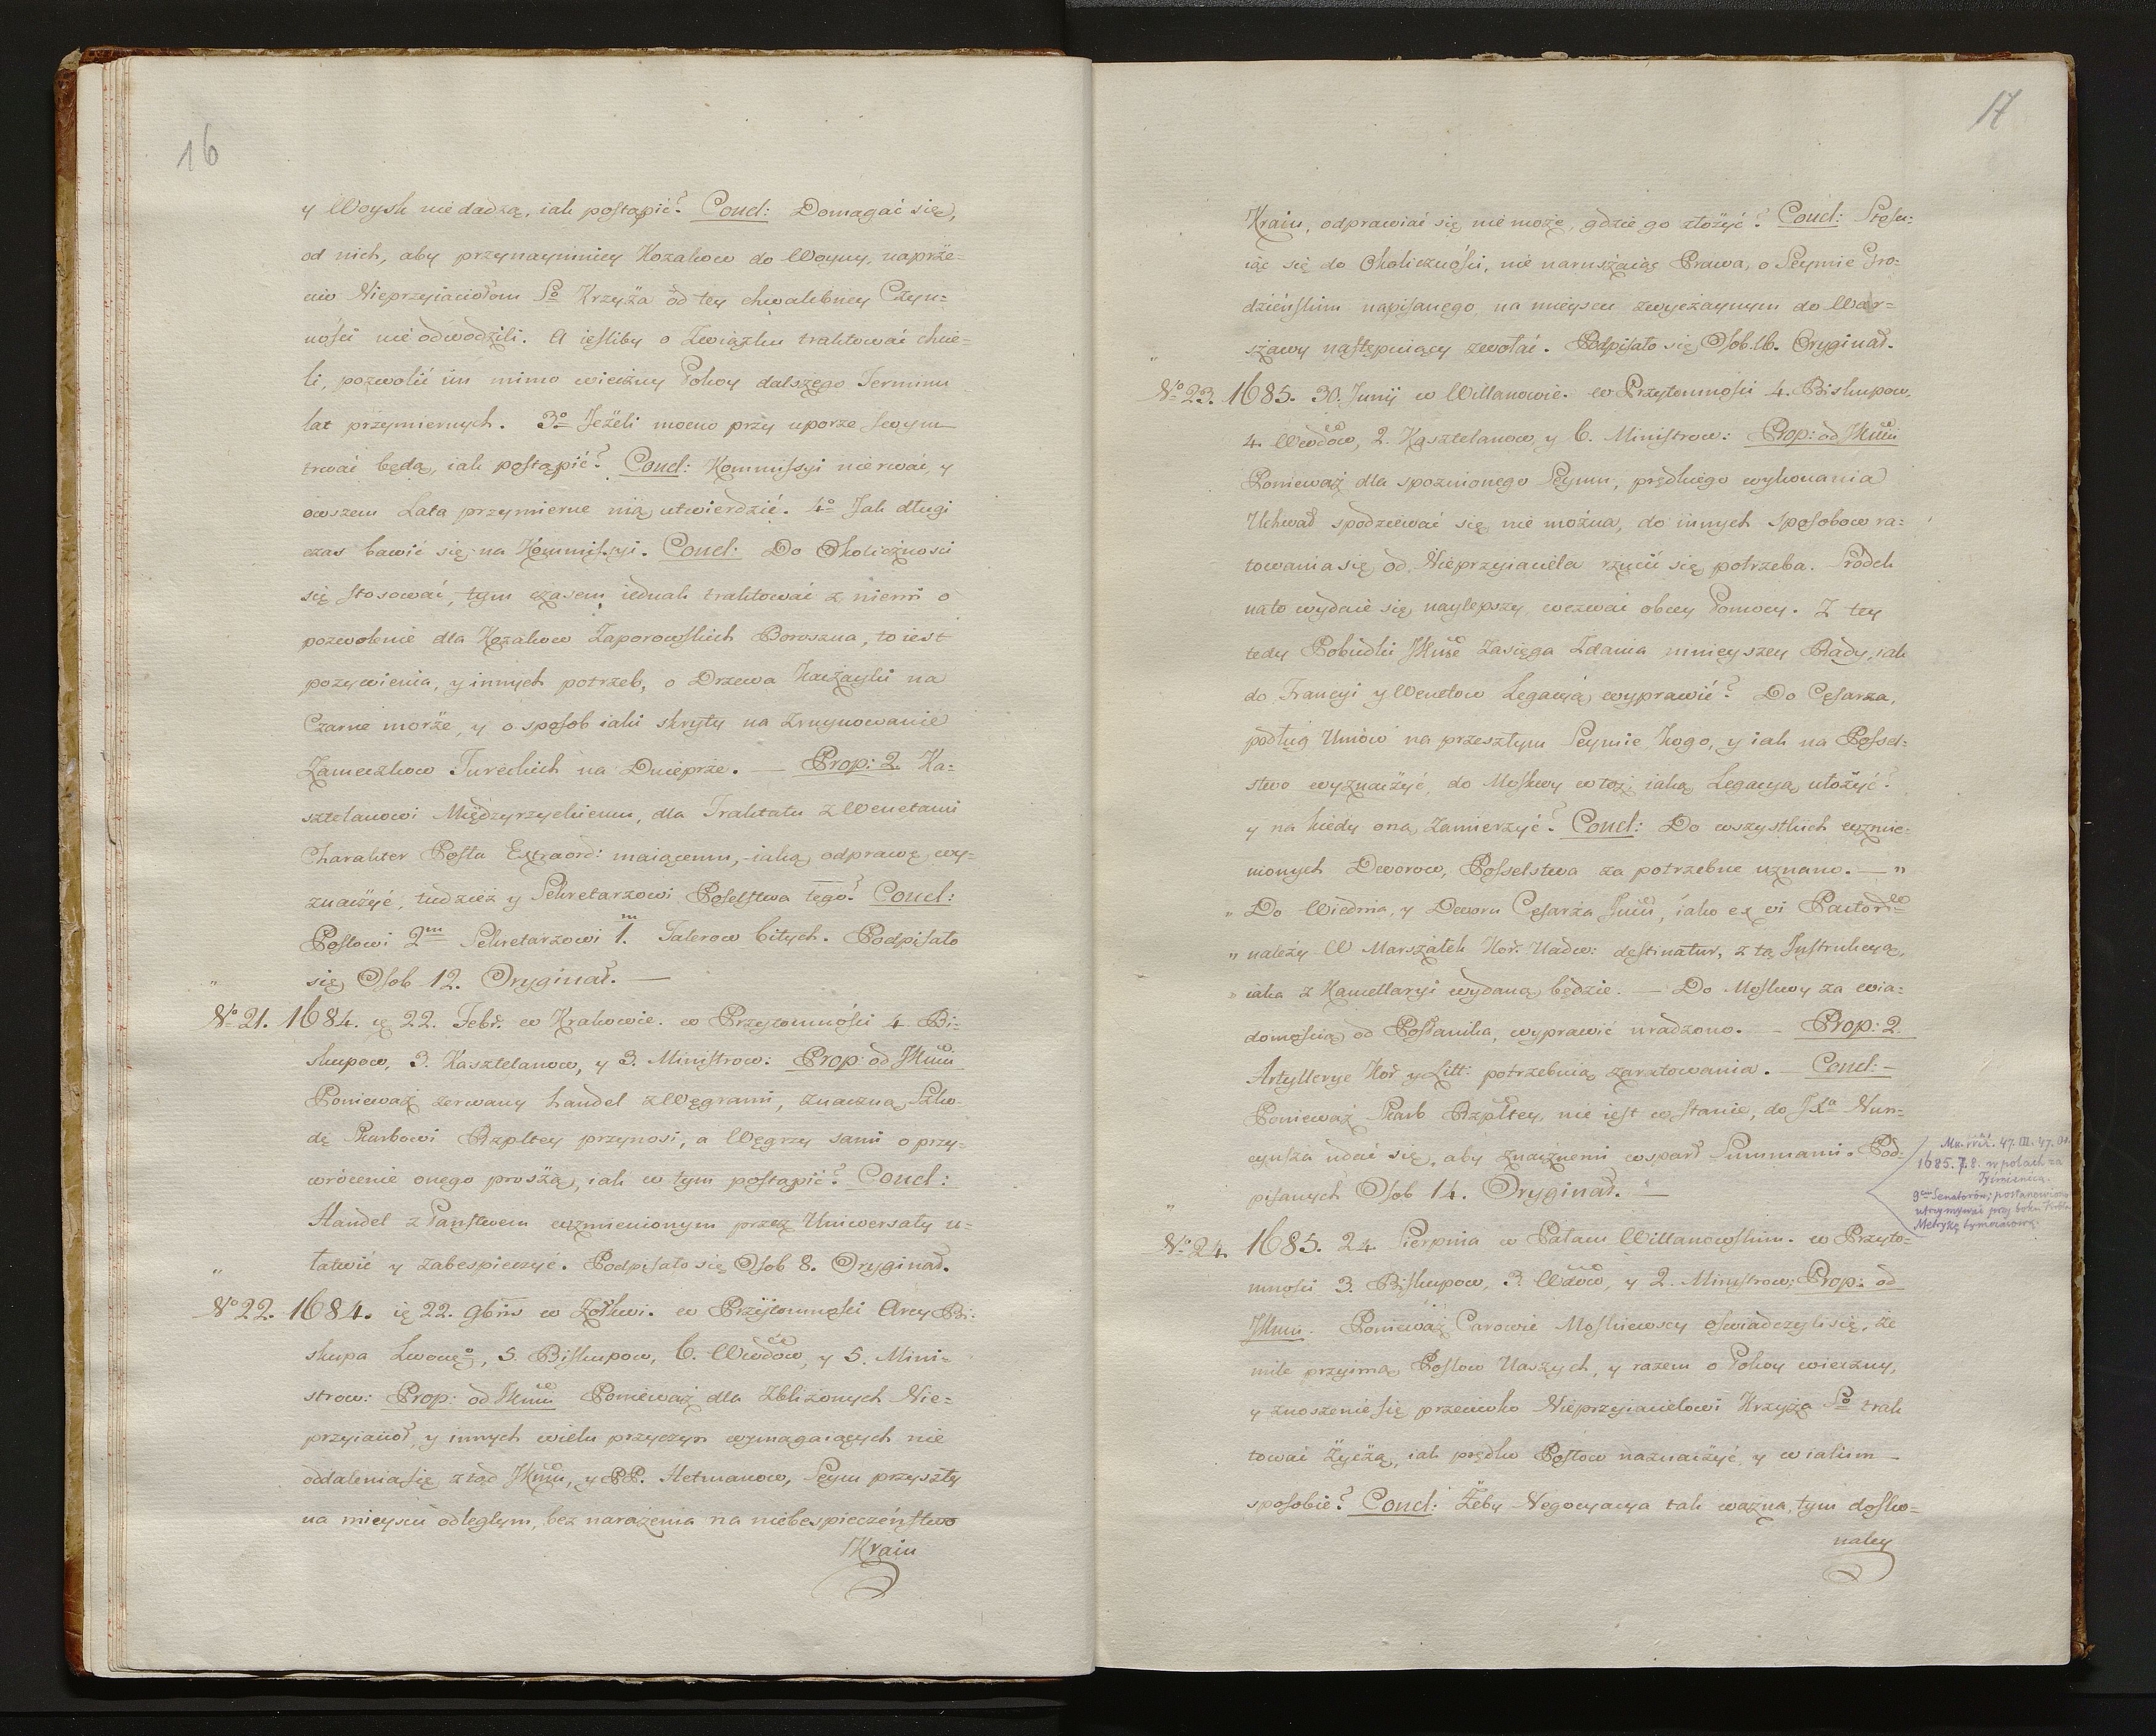 16
y Woysk nie dadzą, iak postąpić? Concl: Domagać się,
od nich, aby przynaymniey Kozakow do Woyny, naprze=
ciw Nieprzyiaciołom So Krzyża od tey chwalebney Czyn=
ności nie odwodzili. A ieśliby o Związku traktować chcie=
li, pozwolić im mimo wieczny Pokoy dalszego Terminu
lat przymiernych. 3o Jeżeli mocno przy uporze swym
trwać będą, iak postąpić? Concl: Kommissyi nie rwać, y
owszem Lata przymierne nią utwierdzić. 4o Jak długi
czas bawić się na Kommissyi. Concl: Do Okolicznosci
się stosować, tym czasem iednak traktować z niemi o
pozwolenie dla Kozakow Zaporowskich Boroszna, to iest
pozywienia, y innych potrzeb, o Drzewa Kaczayki na
Czarne morże, y o sposob iaki skryty na Zruynowanie
Zameczkow Tureckich na Dnieprże. — Prop: 2. Ka=
sztelanowi Międzyrzyckiemu, dla Traktatu z Wenetami
Charakter Posła Extraord: maiącemu, iaką odprawę wy=
znaczyć, tudzież y Sekretarzowi Poselstwa tego? Concl:
Posłowi 2m Sekretarzowi 1.m Talerow bitych. Podpisało
się Osob 12. Oryginał. —
No 21. 1684. ię 22. Febr. w Krakowie. w Przytomności 4 Bi=
skupow, 3. Kasztelanow, y 3. Ministrow: Prop: od JKMci
Ponieważ zerwany handel z Węgrami, znaczną Szko=
dę Skarbowi Rzpltey przynosi, a Węgrzy sami o przy=
wrócenie onego proszą, iak w tym postąpić? Concl:
Handel z Państwem wzmienionym przez Uniwersały u=
łatwić y zabespieczyć. Podpisało się Osob 8. Oryginał.
No 22. 1684. ię 22. 9bris w Żołkwi. w Przytomności Arcy Bi=
skupa Lwowgo, 5. Biskupow, 6. Wdow, y 5. Mini=
strow: Prop: od JKMci Ponieważ dla zbliżonych Nie=
przyiacioł, y innych wielu przyczyn wymagaiących nie
oddalenia się ztąd JKMci, y PP. Hetmanow, Seym przyszły
na mieyscu odległym, bez narażenia na niebespieczeństwo
Kraiu
17
Kraiu, odprawiać się nie może, gdzie go złożyć? Concl: Stosu=
iąc się do Okoliczności, nie naruszaiąc Prawa, o Seymie Gro=
dzieńskim napisanego, na mieyscu zwyczaynym do War=
szawy następuiący zwołać. Podpisało się Osob. 16. Oryginał.
No 23. 1685. 30. Junij w Willanowie. w Przytomności 4. Biskupow,
4. Wwdow, 2. Kasztelanow, y 6. Ministrow: Prop: od JKMci
Ponieważ dla spoznionego Seymu, prędkiego wykonania
Uchwał spodziewać się nie można, do innych sposobow ra=
towania się od Nieprzyiaciela rzucić się potrzeba. Srodek
na to wydaie się naylepszy, wezwać obcey Pomocy. Z tey
tedy Pobudki JKMć zasięga Zdania mnieyszey Rady, iak
do Francyi y Wenetow Legacyą wyprawić? Do Cesarza,
podług Umów na przeszłym Seymie Kogo, y iak na Possel=
stwo wyznaczyć, do Moskwy w też iaką Legacyą ułożyć?
y na kiedy oną zamierzyć? Concl: Do wszystkich wzmie=
nionych Dworow, Posselstwa za potrzebne uznano. — „
„ Do Wiednia, y Dworu Cesarża Jmci, iako ex vi
„ należy W Marszałek Kor. Nadw: destinatur, z tą Instrukcyą,
„ iaka z Kancellaryi wydaną będzie. — Do Moskwy za wia=
domością od Posłanika, wyprawić uradzono. — Prop: 2.
Artyllerye Kor y Litt: potrzebuią zaratowania. — Concl: —
Ponieważ Skarb Rzpltey, nie iest w stanie, do JXa Nun=
cyusza udać się, aby znacznemi wsparł Summami. Pod=
pisanych Osob 14. Oryginał. —
1685. 7. 8. w polach za
9ciu Senatorów; postanowiono
utrzymywać przy boku Króla
Metrykę tymczasową.
No 24. 1685. 24 Sierpnia w Pałacu Willanowskim. w Przyto=
mności 3. Biskupow, 3. Wdow, y 2. Ministrow; Prop: od
JKMci. Ponieważ Carowie Moskiewscy oświadczyli się, że
mile przyimą Posłow Naszych, y razem o Pokoy wieczny,
y znoszenie się przeciwko Nieprzyiacielowi Krzyża So trak
tować życzą, iak prędko Posłow naznaczyć, y w iakim
sposobie? Concl: Żeby Negocyacya tak ważna, tym dosko=
naley